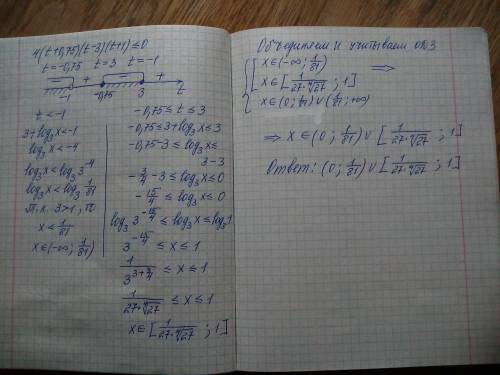 4(t+0,75)(t-3)(t+1)≤0
t=-0,75 t=3 t=-1
- + - +
-1 -0,75 3 t
t < -1
3+log₃x<-1
log₃x<-4
log₃x<log₃3⁻⁴
log₃x<log₃ 1/81
т.к. 3>1, то
x < 1/81
x∈(-∞; 1/81)
-0,75 ≤ t ≤ 3
-0,75≤3+log₃x ≤ 3
-0,75-3 ≤ log₃x ≤
3-3
-3/4-3 ≤ log₃x ≤ 0
-15/4 ≤ log₃x ≤ 0
log₃3^(-15/4) ≤ log₃x ≤ log₃1
3^(-15/4) ≤ x ≤ 1
1/3^(3+3/4) ≤ x ≤ 1
1/(27·⁴√27) ≤ x ≤ 1
x∈[1/(27·⁴√27) ; 1]
Объединяем и учитываем ОДЗ
x∈(-∞; 1/81)
x∈[1/(27·⁴√27) ; 1] ⇒
x∈(0; 1/81)∪(1/81; +∞)
⇒ x∈(0; 1/81)∪[1/(27·⁴√27) ; 1]
Ответ: (0; 1/81)∪[1/(27·⁴√27) ; 1]